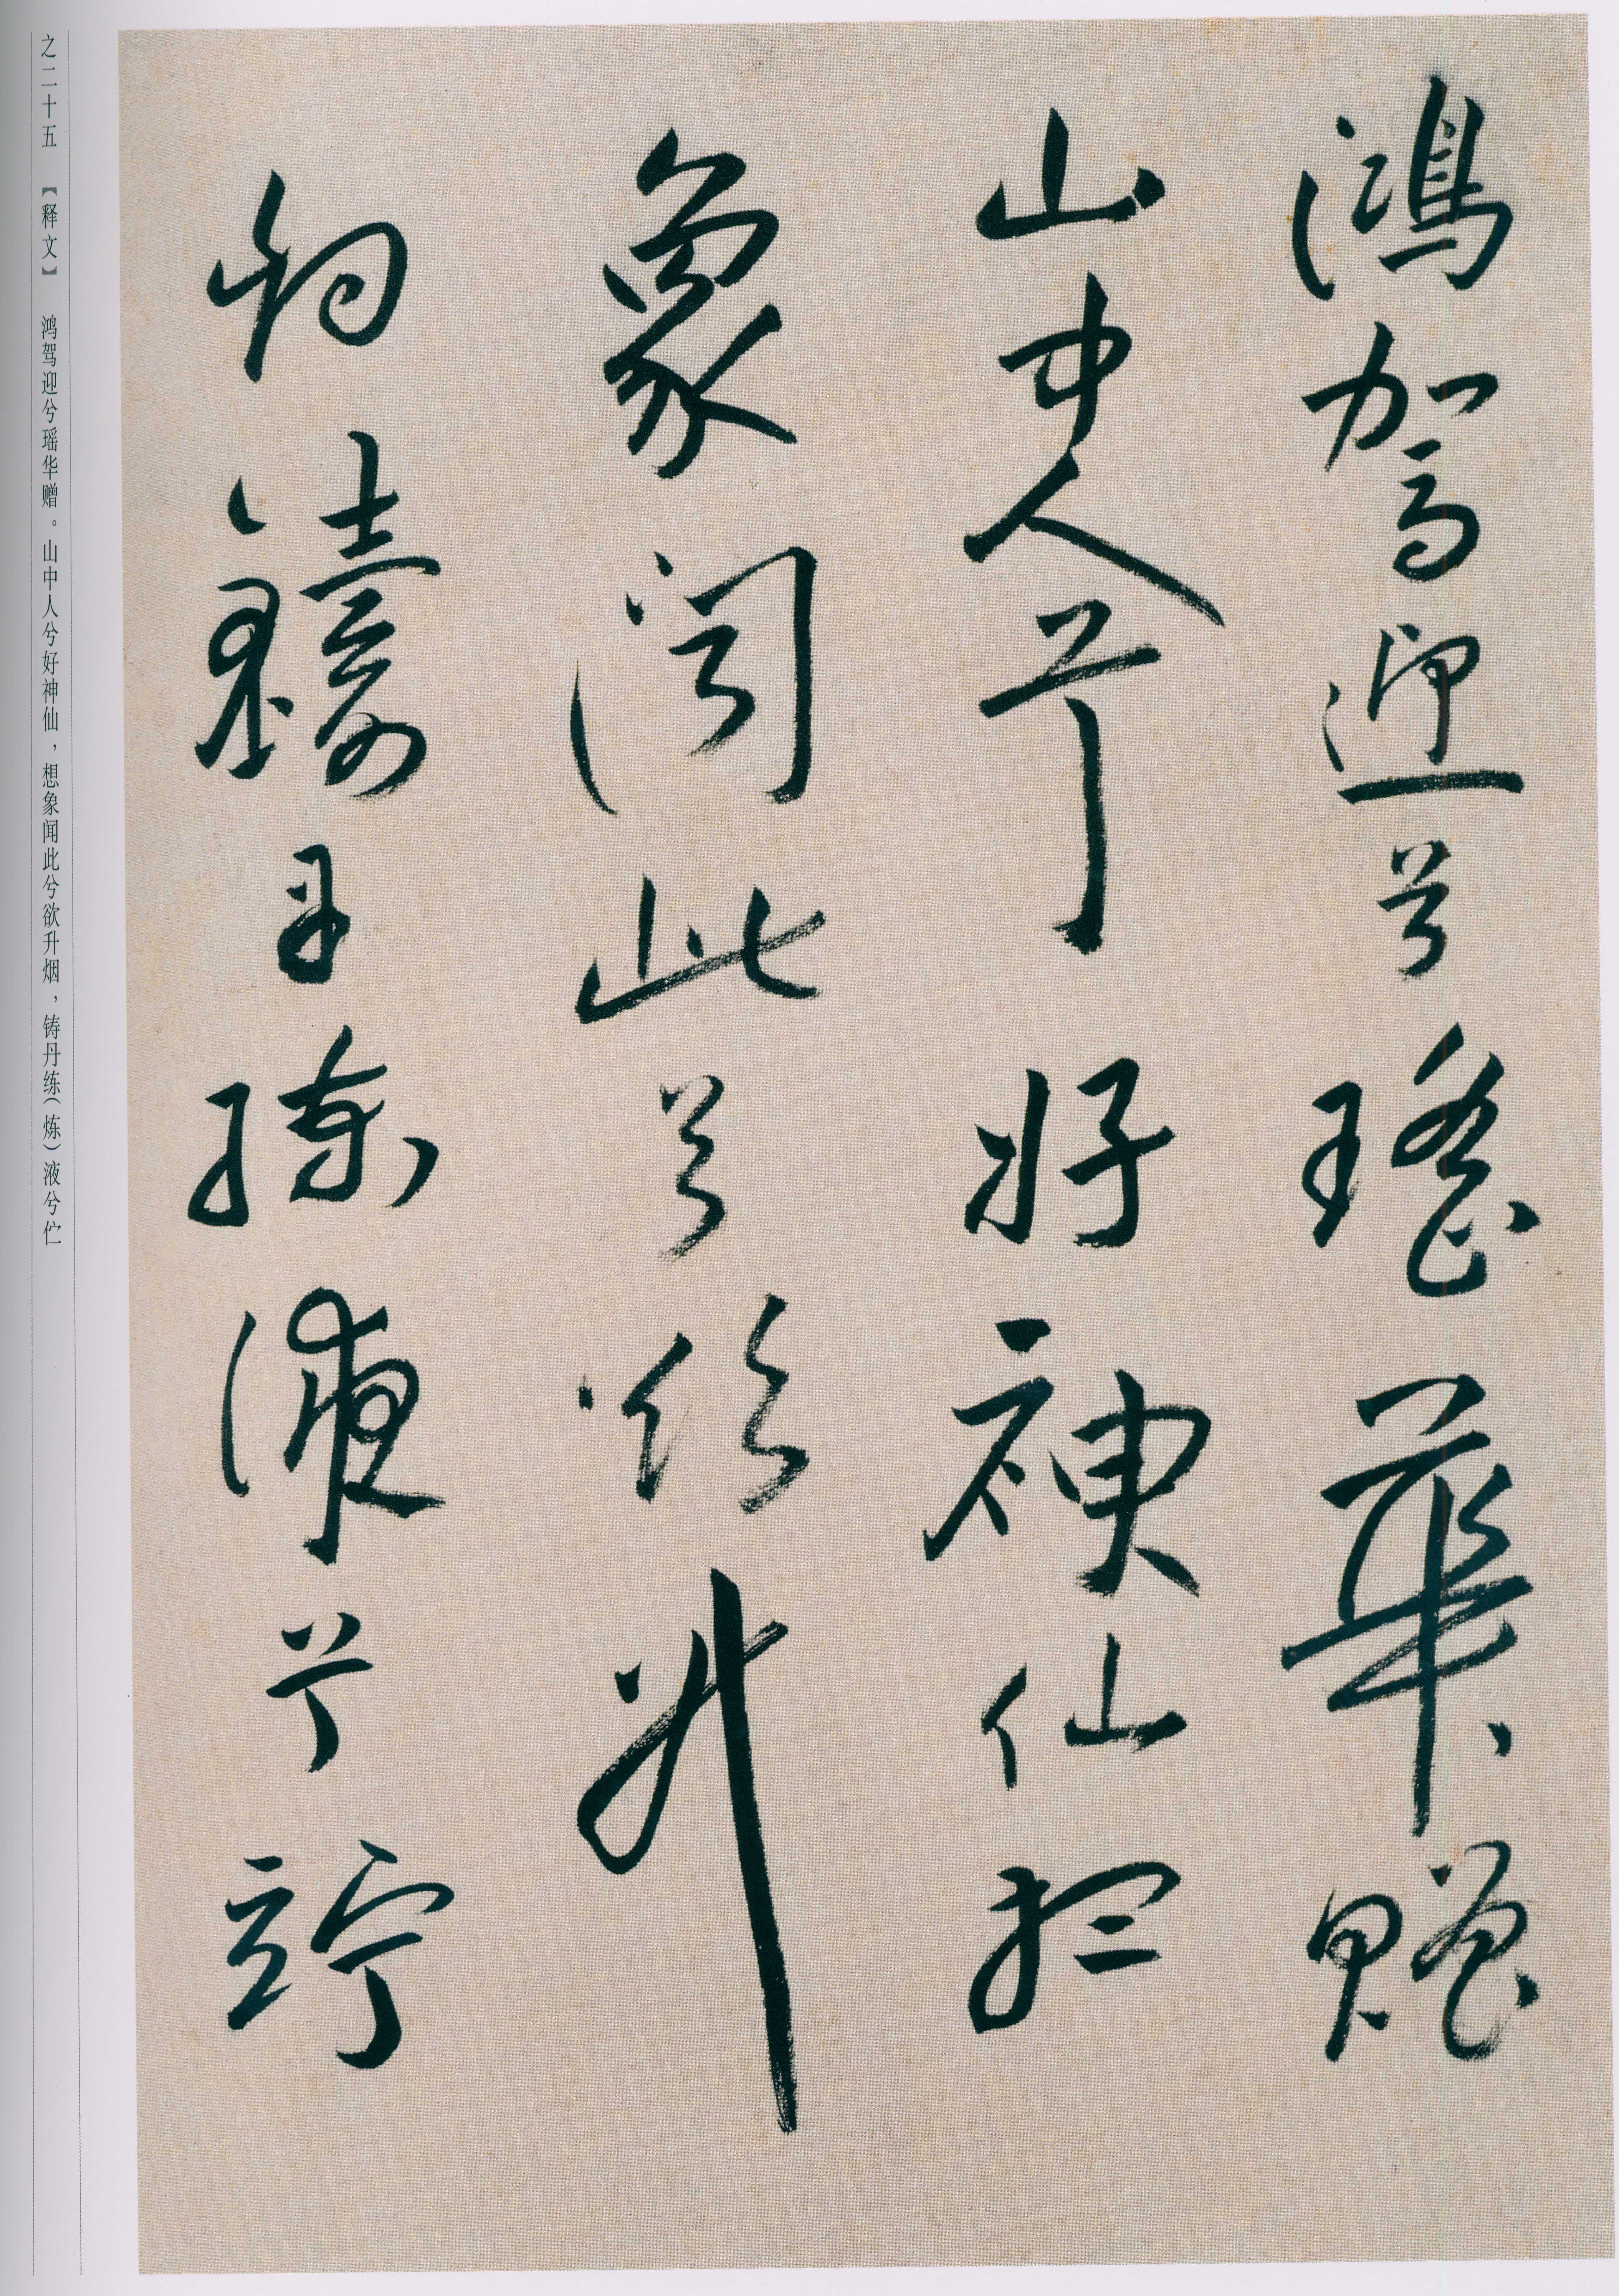 鴻駕迎兮瑤華贈
山中人兮好神仙想
象聞此兮欲升
烟鑄丹練液兮竚
之二十五 【释文】 鸿驾迎兮瑶华赠。山中人兮好神仙，想象闻此兮欲升烟，铸丹练（炼）液兮伫